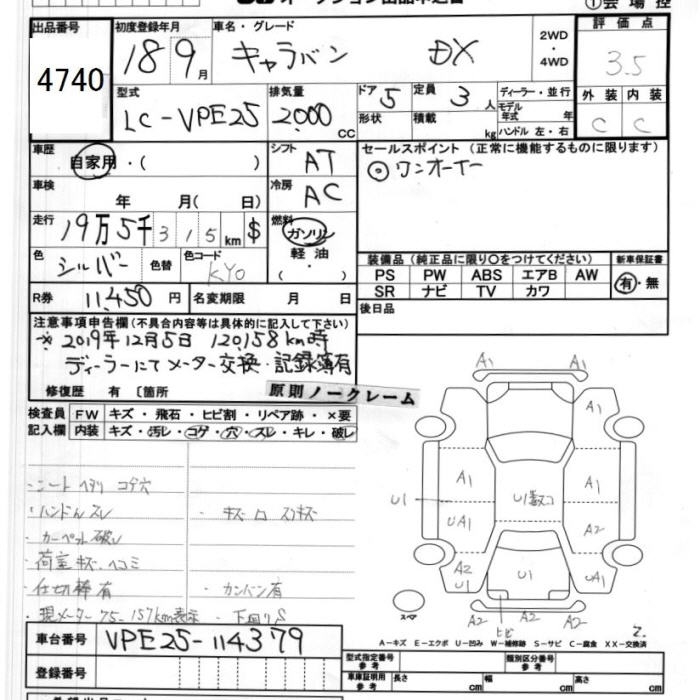 ①会場控
出品番号
4740
初度登録年月
18 9月
車名・グレード
キャラバン DX
2WD ・ 4WD
評価点
3.5
型式
LC-VPE25
排気量
2,000 cc
ドア 5
定員 3人
形状
積載 kg
ディーラー・並行
モデル年式 年
ハンドル 左・右
外装 内装
C C
車歴
自家用・( )
シフト AT
セールスポイント (正常に機能するものに限ります)
◎ワンオーナー
車検
年 月( 日)
冷房 AC
走行
19万5千315km $
燃料
ガソリン
軽油
・( )
色
シルバー
色替
色コード
KY0
装備品 (純正品に限り○をつけてください)
新車保証書
PS PW ABS エアB AW
SR ナビ TV カワ
有・無
R券 11,450円
名変期限 月 日
後日品
注意事項申告欄 (不具合内容等は具体的に記入して下さい)
※2019年12月5日 120,158km時
ディーラーにてメーター交換・記録簿有
修復歴 有 〔箇所
原則ノークレーム
検査員
記入欄
FW キズ・飛石・ヒビ割・リペア跡・×要
内装 キズ・汚レ・コゲ・穴・スレ・キレ・破レ
・シートヘタリ コゲ穴
・ハンドルスレ
・カーペット破レ
・荷室キズ、ヘコミ
・仕切棒有
・カンバン有
・現メーター75-157km表示
・下回りS
A1
A1 A1
A1 A1
U1 U1数コ
UA1 A2
A2
U1 U1 UA1
A2 A2 A2
ヒビ
スペア
Z.
A-キズ E-エクボ U-凹み W-補修跡 S-サビ C-腐食 XX-交換済
車台番号 VPE25-114379
登録番号
型式指定番号 参考
類別区分番号 参考
車庫証明用 参考
長さ cm
幅 cm
高さ cm